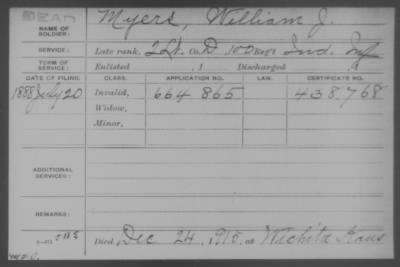 DEAD
NAME OF SOLDIER: Myers, William J.
SERVICE: Late rank, 2 Lt. Co. D Regt Ind. Inf
TERM OF SERVICE: Enlisted , 1 Discharged , 1
DATE OF FILING. CLASS. APPLICATION NO. LAW. CERTIFICATE NO.
1888 July 20 Invalid, 664 865 438,768
Widow,
Minor,
ADDITIONAL SERVICES:
REMARKS:
Died Dec 24, 1915, at Wichita Kans